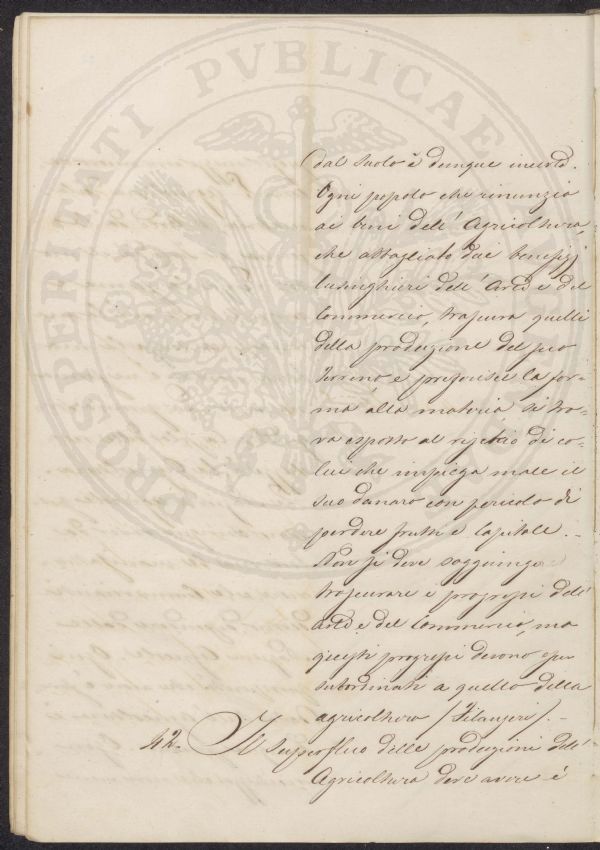 dal suolo è dunque incerto.
Ogni popolo che rinunzia
ai beni dell' Agricoltura,
che abbagliato dai benefizj
lusinghieri dell' Arti e del
Commercio, trascura quelli
della produzione del suo
terreno e preferisce la for=
ma alla materia si tro=
va esposto al rischio di co=
lui che impiega male il
suo danaro con pericolo di
perdere frutti e capitale. -
Non si deve soggiunge
trascurare i progressi dell'
arti e del Commercio, ma
questi progressi devono esser
subordinati a quello della
agricoltura (Filangeri). -
42. Il superfluo delle produzioni dell'
Agricoltura deve avere è
PROSPERITATI PVBLICAE